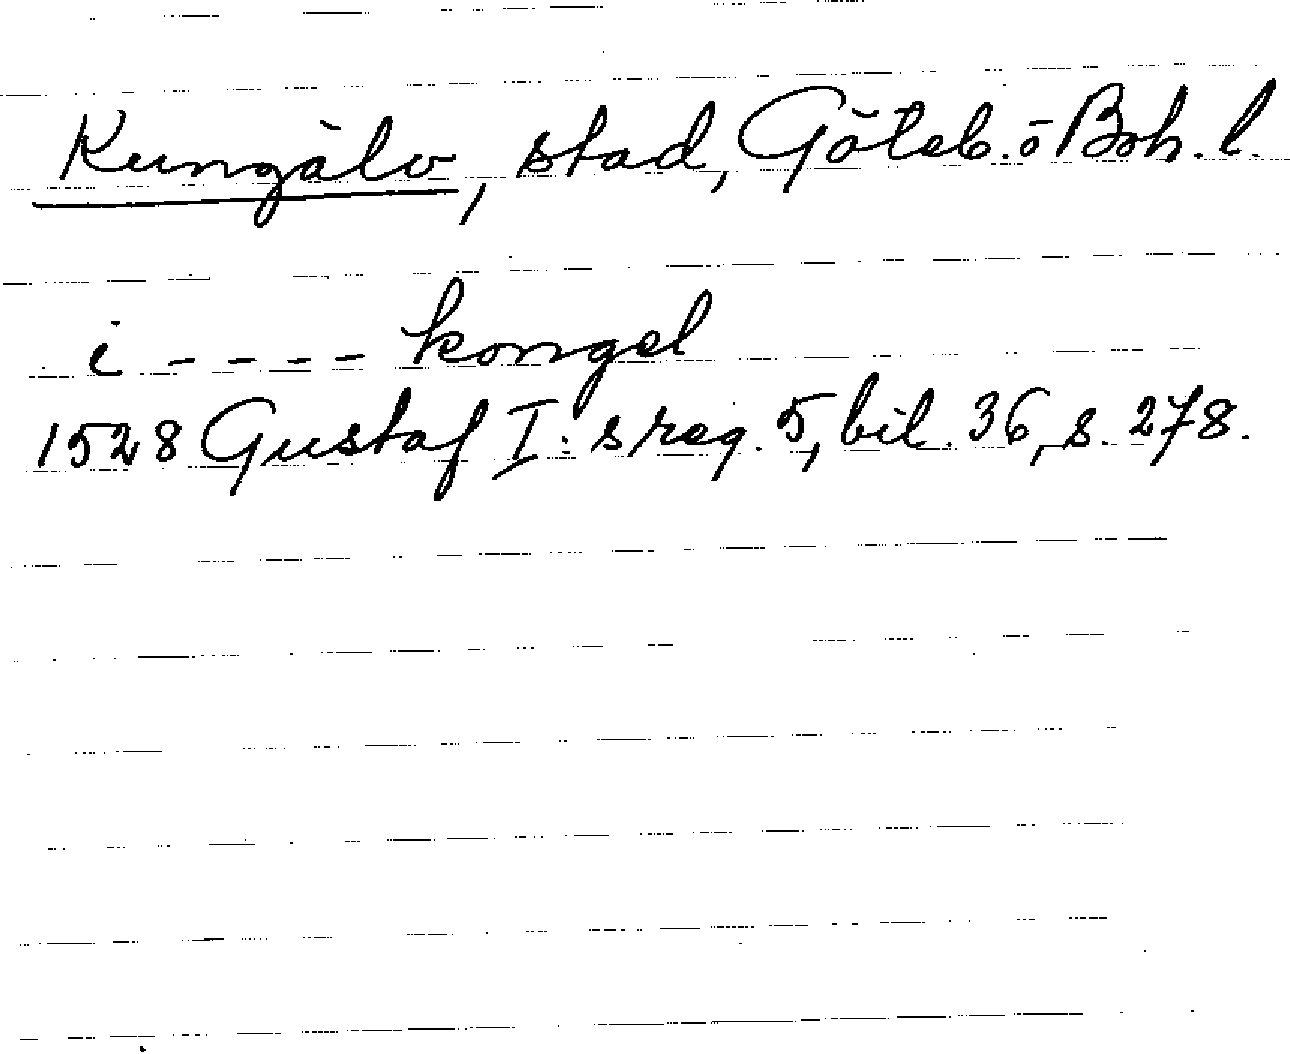 Kungälv, stad, Göteb. o Boh. l.
i - - - - kongel
1528 Gustaf I: s reg. 5, bil. 36, s. 278.